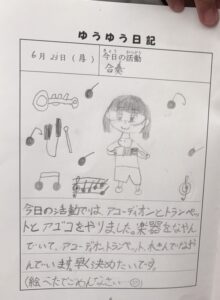 ゆうゆう日記
6月23日(月)
きょう かつどう
今日の活動
合奏
今日の活動では、アコーディオンとトランペッ
トとアゴゴをやりました。楽器をなやん
でいて、アコーディオン、トランペット、木きんでなや
んでいます。早く決めたいです。
(絵へたでごめんなさい